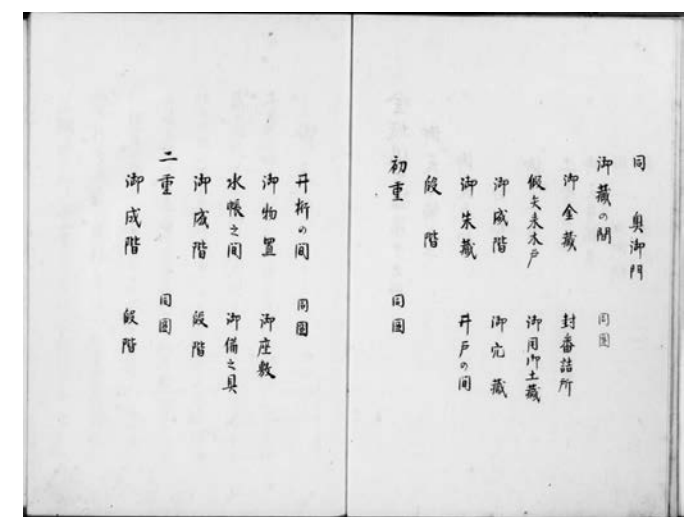 同 奥御門
御蔵の間 同圖
御金蔵 封番詰所
假矢来木戸 御用御土蔵
御成階 御宛蔵
御朱蔵 井戸の間
段階
初重 同圖
井桁の間 同圖
御物置 御座敷
水帳之間 御備之具
御成階 段階
二重 同圖
御成階 段階